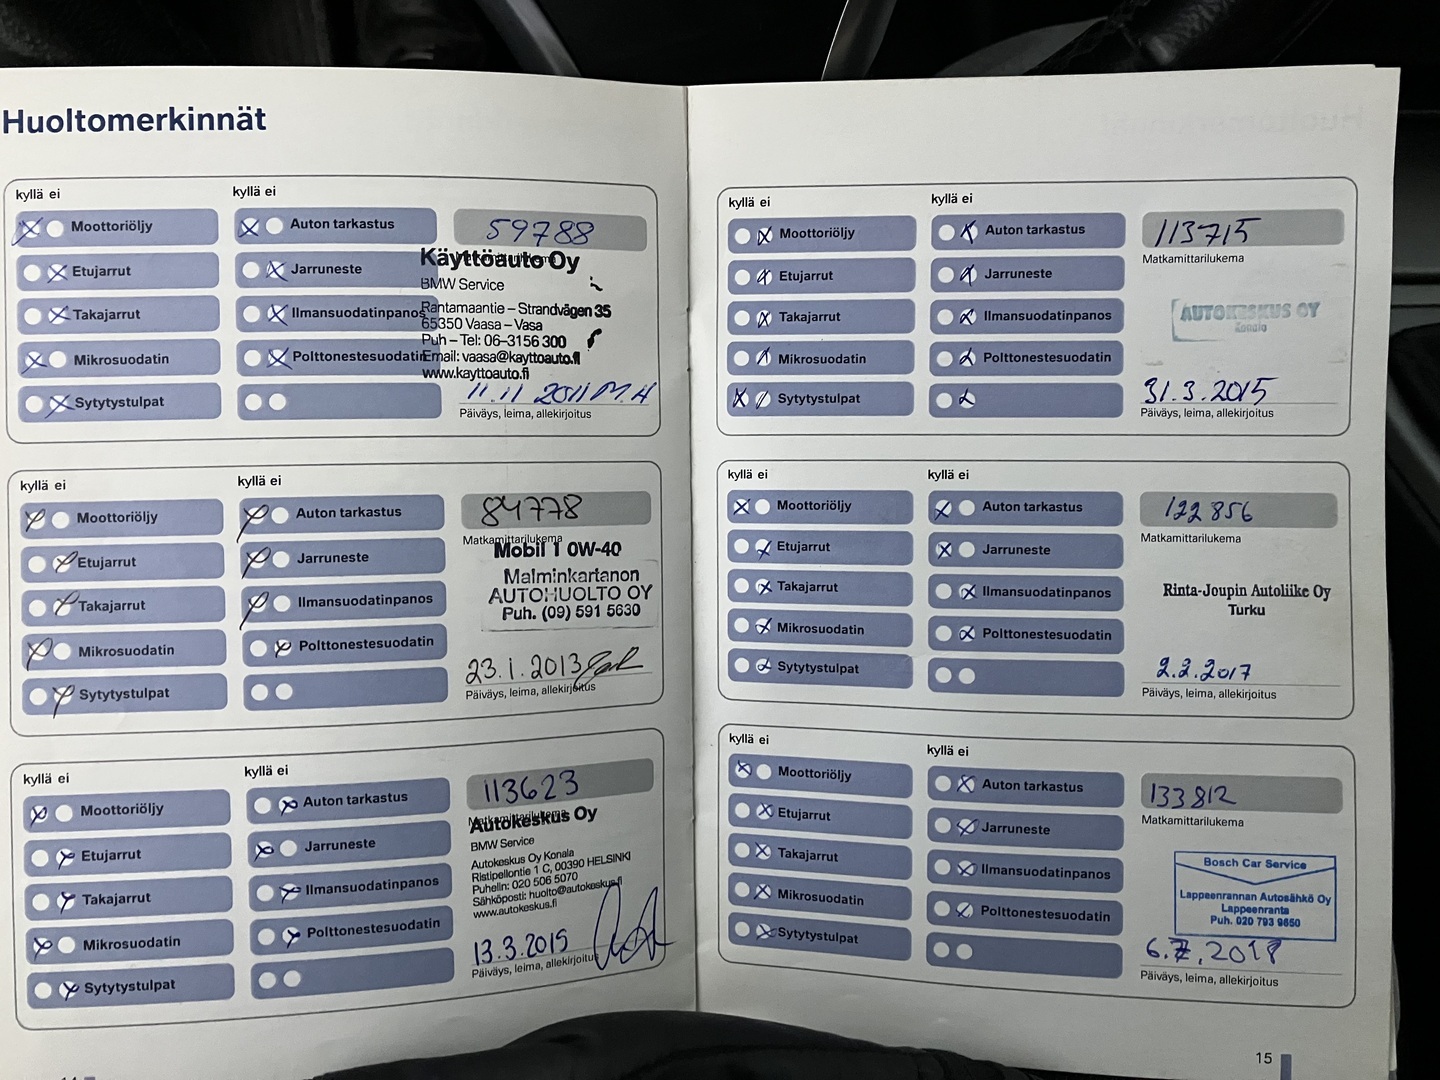 Huoltomerkinnät
kyllä ei
kyllä ei
Moottoriöljy
Auton tarkastus
59788
Matkamittarilukema
Etujarrut
Jarruneste
Käyttöauto Oy
BMW Service
Takajarrut
Ilmansuodatinpanos
Rantamaantie – Strandvägen 35
65350 Vaasa – Vasa
Puh – Tel: 06–3156 300
Mikrosuodatin
Polttonestesuodatin
Email: vaasa@kayttoauto.fi
www.kayttoauto.fi
Sytytystulpat
11.11 2011 M.H
Päiväys, leima, allekirjoitus
kyllä ei
kyllä ei
Moottoriöljy
Auton tarkastus
84778
Matkamittarilukema
Etujarrut
Jarruneste
Mobil 1 0W-40
Malminkartanon
AUTOHUOLTO OY
Puh. (09) 591 5630
Takajarrut
Ilmansuodatinpanos
Mikrosuodatin
Polttonestesuodatin
Sytytystulpat
23.1.2013
Päiväys, leima, allekirjoitus
kyllä ei
kyllä ei
Moottoriöljy
Auton tarkastus
113623
Matkamittarilukema
Etujarrut
Jarruneste
Autokeskus Oy
BMW Service
Autokeskus Oy Konala
Ristipellontie 1 C, 00390 HELSINKI
Puhelin: 020 506 5070
Sähköposti: huolto@autokeskus.fi
www.autokeskus.fi
Takajarrut
Ilmansuodatinpanos
Mikrosuodatin
Polttonestesuodatin
Sytytystulpat
13.3.2015
Päiväys, leima, allekirjoitus
kyllä ei
kyllä ei
Moottoriöljy
Auton tarkastus
113715
Matkamittarilukema
Etujarrut
Jarruneste
Takajarrut
Ilmansuodatinpanos
AUTOKESKUS OY
Konala
Mikrosuodatin
Polttonestesuodatin
Sytytystulpat
31.3.2015
Päiväys, leima, allekirjoitus
kyllä ei
kyllä ei
Moottoriöljy
Auton tarkastus
122 856
Matkamittarilukema
Etujarrut
Jarruneste
Takajarrut
Ilmansuodatinpanos
Rinta-Joupin Autoliike Oy
Turku
Mikrosuodatin
Polttonestesuodatin
Sytytystulpat
2.2.2017
Päiväys, leima, allekirjoitus
kyllä ei
kyllä ei
Moottoriöljy
Auton tarkastus
133812
Matkamittarilukema
Etujarrut
Jarruneste
Takajarrut
Ilmansuodatinpanos
Bosch Car Service
Lappeenrannan Autosähkö Oy
Lappeenranta
Puh. 020 793 9650
Mikrosuodatin
Polttonestesuodatin
Sytytystulpat
Päiväys, leima, allekirjoitus
15